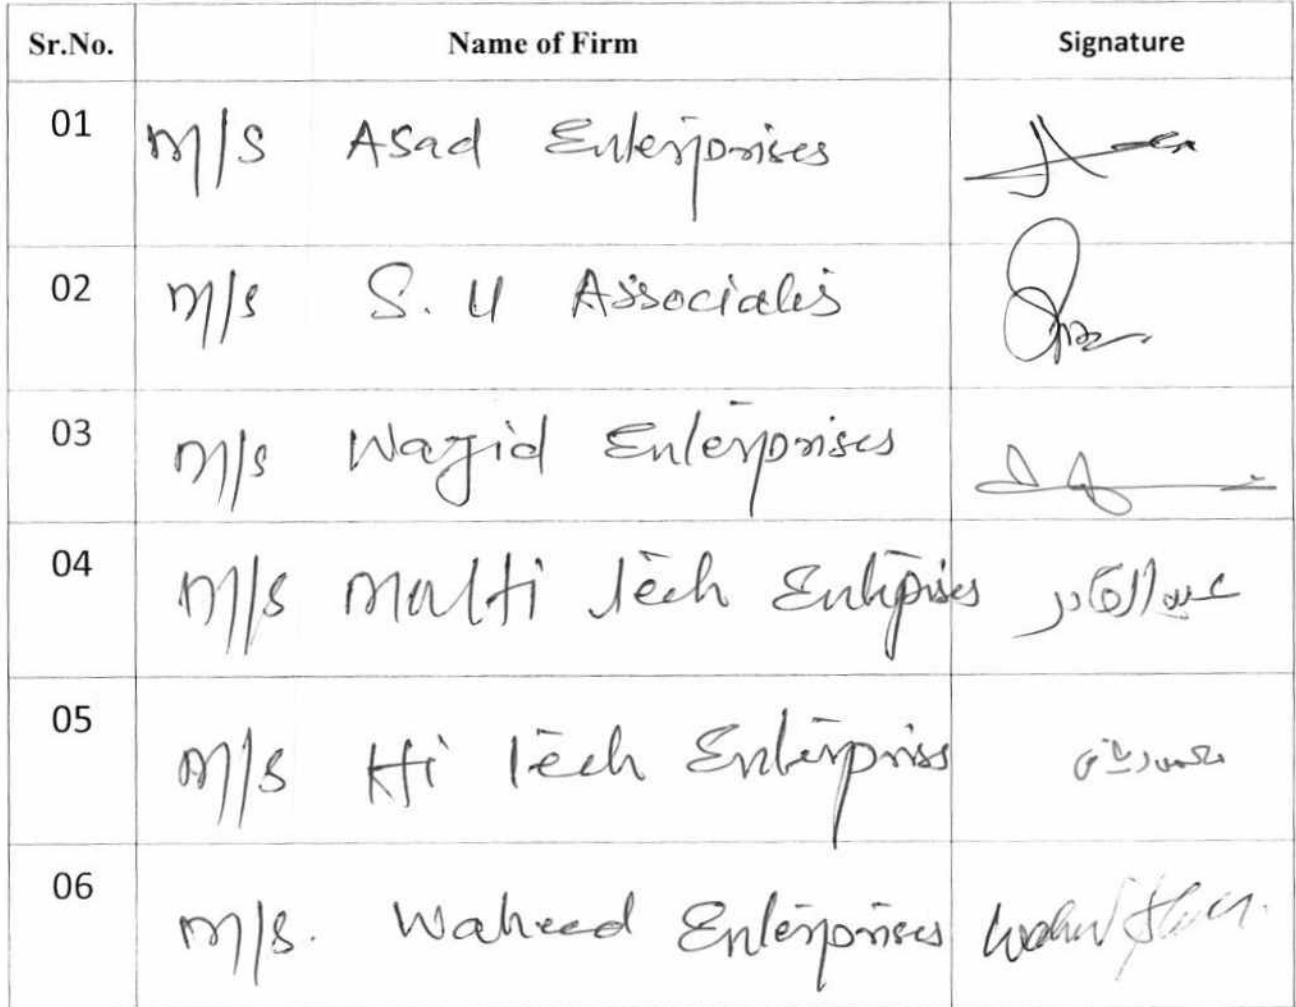 Sr.No. Name of Firm Signature
01 M/S Asad Enterprises
02 M/s S. U Associates
03 M/s Wajid Enterprises
04 M/s Multi Tech Enterprises عبدالقادر
05 M/s Hi Tech Enterpriss
06 M/s. Waheed Enterprises